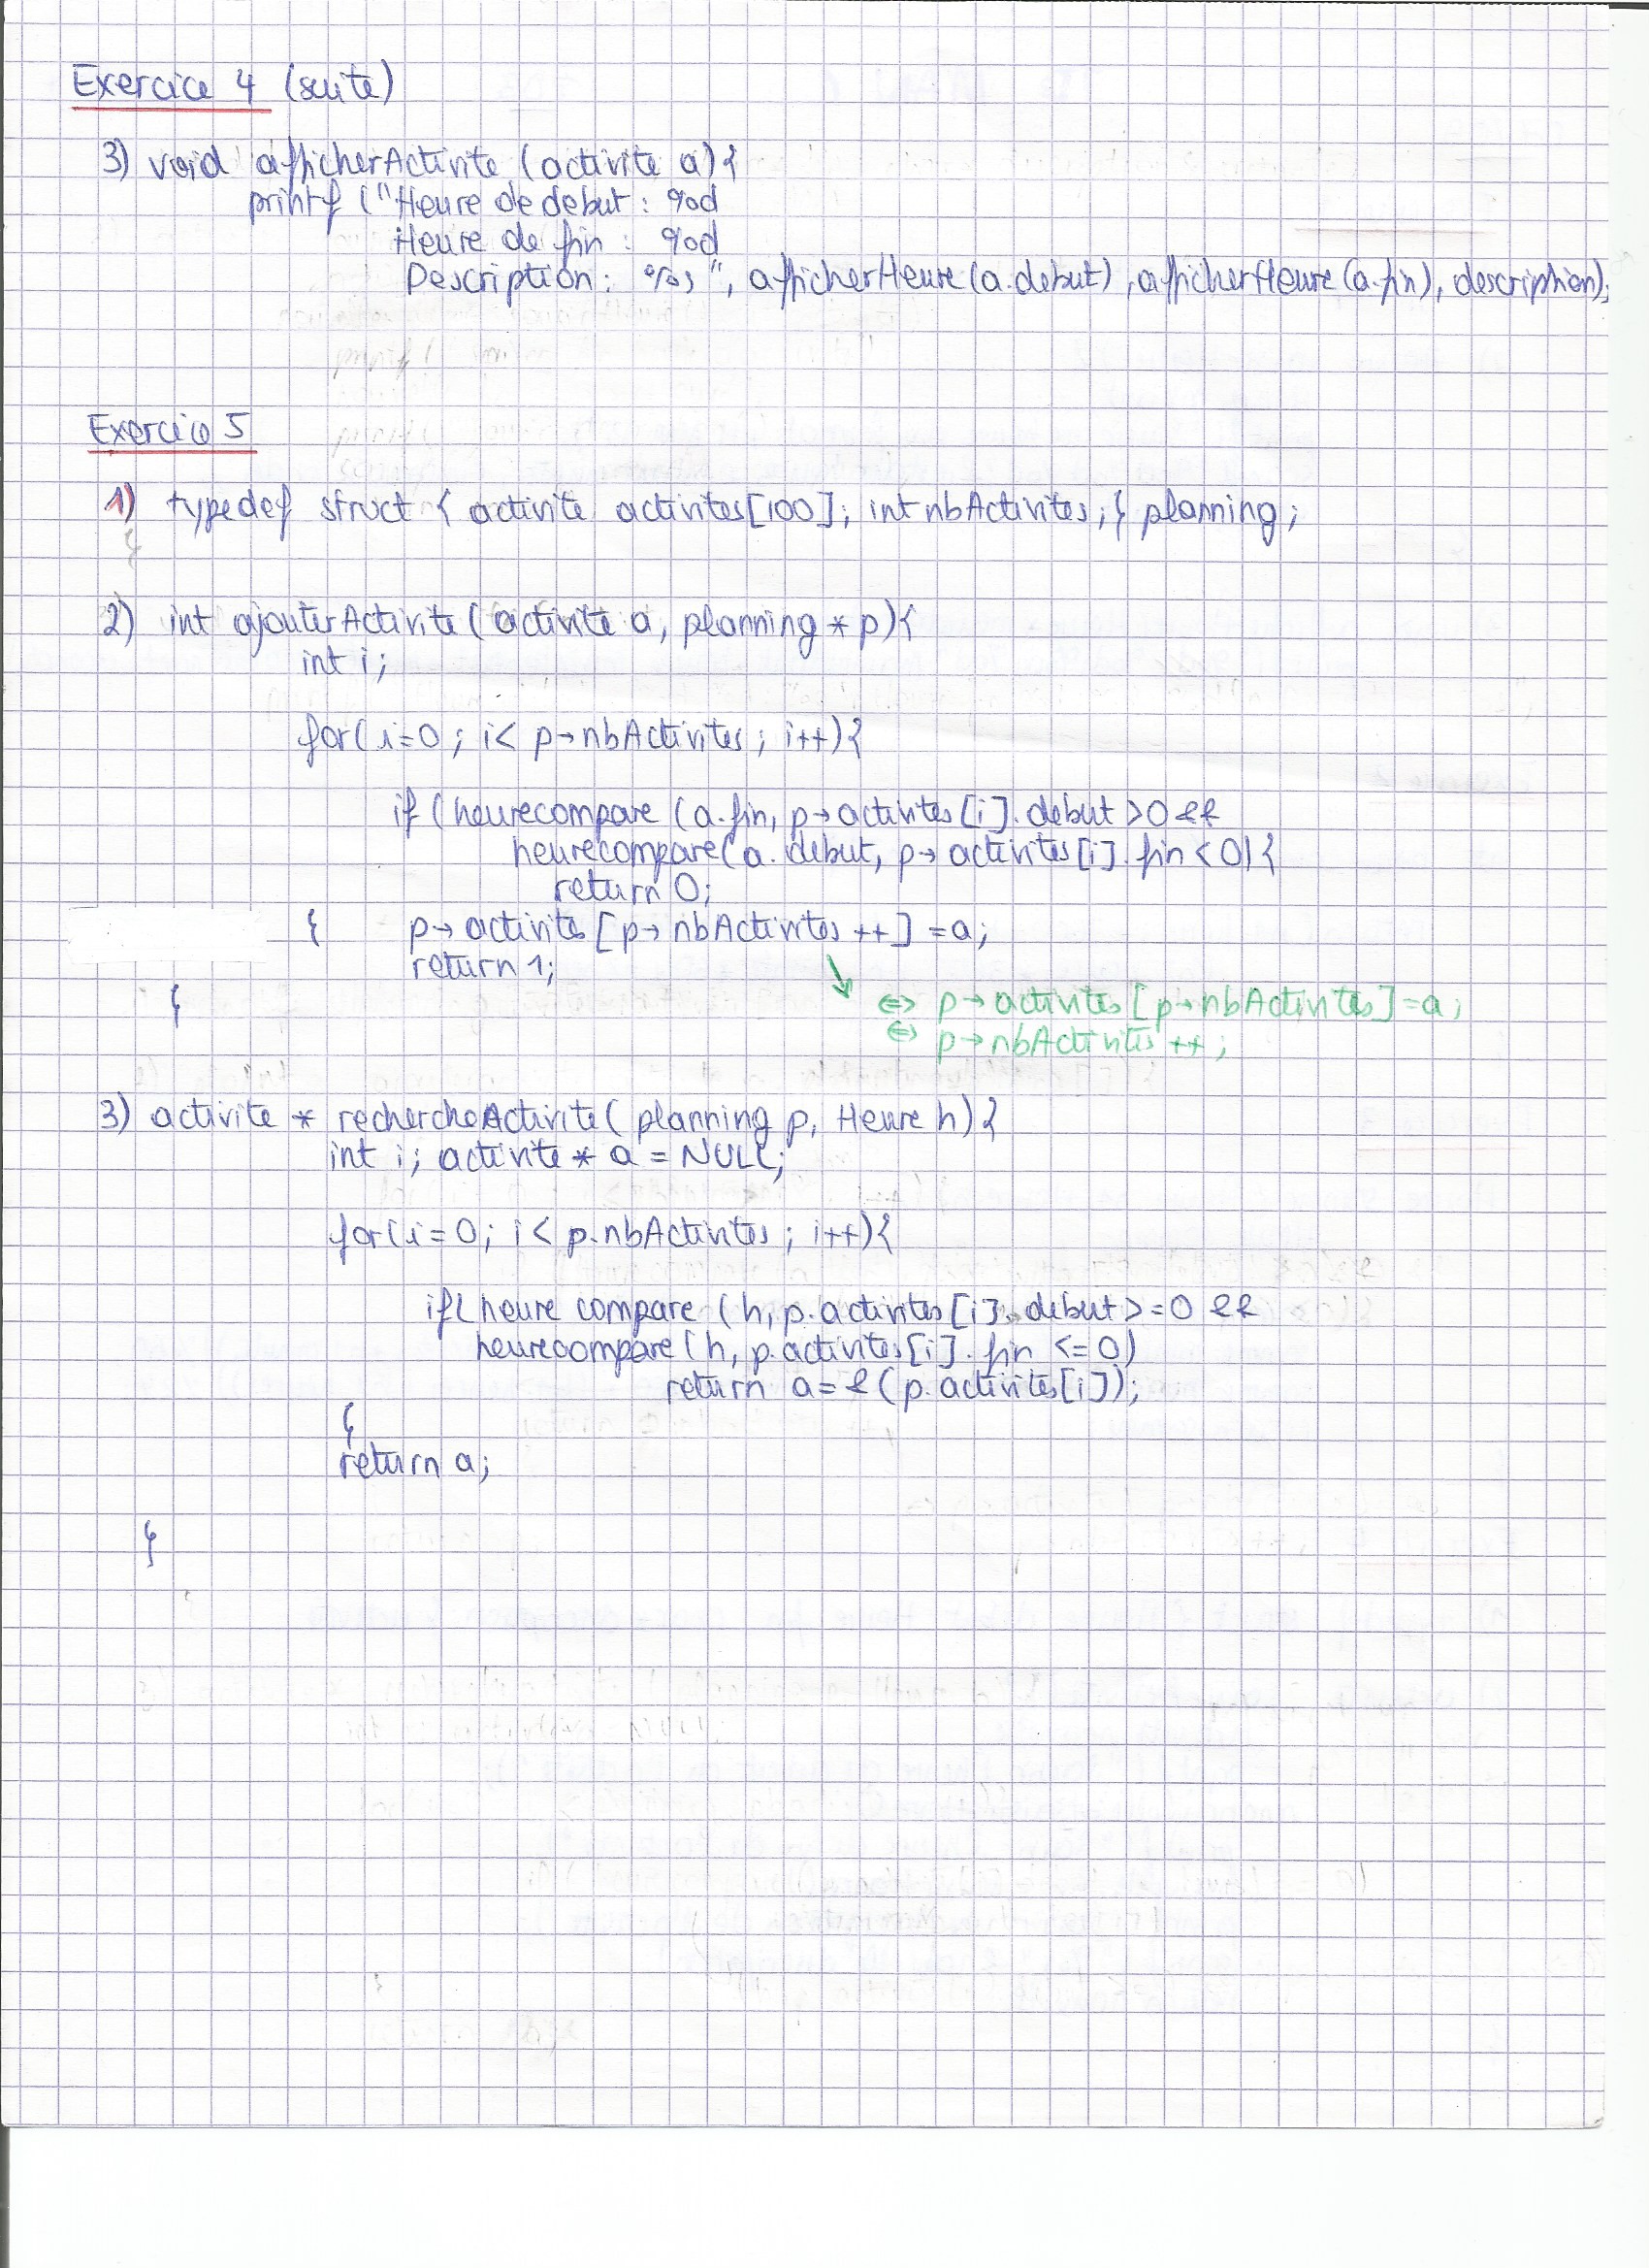 Exercice 4 (suite)
3) void afficherActivite (activite a){
printf ("Heure de debut : %d
Heure de fin : %d
Description : %s", afficherHeure (a.debut), afficherHeure (a.fin), description);
Exercice 5
1) typedef struct { activite activites[100]; int nbActivites; } planning;
2) int ajouterActivite ( activite a, planning * p){
int i;
for( i=0 ; i< p→nbActivites ; i++){
if (heurecompare (a.fin, p→activites[i].debut >0 &&
heurecompare(a.debut, p→activites[i].fin <0){
return 0;
} p→activites [p→nbActivites ++] = a;
return 1;
}
⇔ p→activites [p→nbActivites] = a;
⇔ p→nbActivites ++ ;
3) activite * rechercheActivite( planning p, Heure h){
int i; activite * a = NULL;
for(i=0; i< p.nbActivites ; i++){
if( heure compare (h, p.activites[i].debut >=0 &&
heurecompare (h, p.activites[i].fin <=0)
return a=&(p.activites[i]);
}
return a;
}